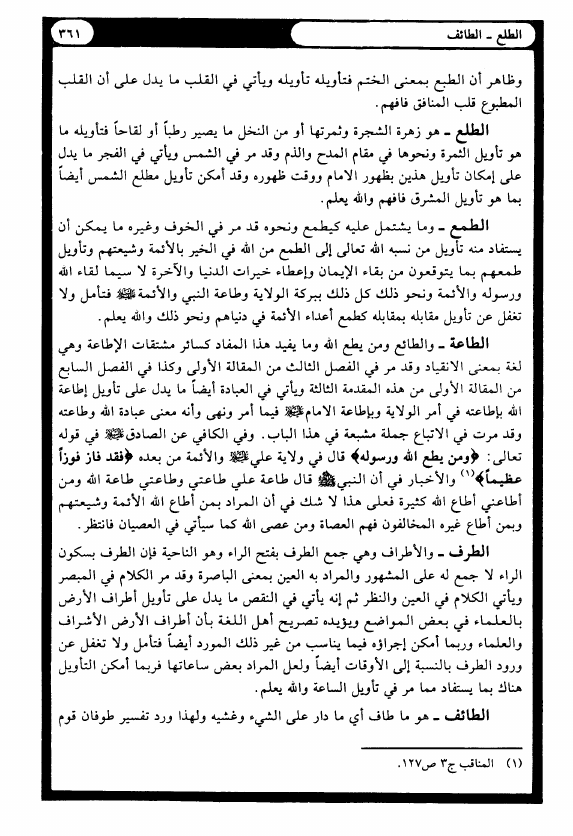 الطلع ـ الطائف
٣٦١
وظاهر أن الطبع بمعنى الختم فتأويله تأويله ويأتي في القلب ما يدل على أن القلب
المطبوع قلب المنافق فافهم.
الطلع ـ هو زهرة الشجرة وثمرتها أو من النخل ما يصير رطباً أو لقاحاً فتأويله ما
هو تأويل الثمرة ونحوها في مقام المدح والذم وقد مر في الشمس ويأتي في الفجر ما يدل
على إمكان تأويل هذين بظهور الامام ووقت ظهوره وقد أمكن تأويل مطلع الشمس أيضاً
بما هو تأويل المشرق فافهم والله يعلم.
الطمع ـ وما يشتمل عليه كيطمع ونحوه قد مر في الخوف وغيره ما يمكن أن
يستفاد منه تأويل من نسبه الله تعالى إلى الطمع من الله في الخير بالأئمة وشيعتهم وتأويل
طمعهم بما يتوقعون من بقاء الإيمان وإعطاء خيرات الدنيا والآخرة لا سيما لقاء الله
ورسوله والأئمة ونحو ذلك كل ذلك ببركة الولاية وطاعة النبي والأئمة فتأمل ولا
تغفل عن تأويل مقابله بمقابله كطمع أعداء الأئمة في دنياهم ونحو ذلك والله يعلم.
الطاعة ـ والطائع ومن يطع الله وما يفيد هذا المفاد كسائر مشتقات الإطاعة وهي
لغة بمعنى الانقياد وقد مر في الفصل الثالث من المقالة الأولى وكذا في الفصل السابع
من المقالة الأولى من هذه المقدمة الثالثة ويأتي في العبادة أيضاً ما يدل على تأويل إطاعة
الله بإطاعته في أمر الولاية وبإطاعة الامام فيما أمر ونهى وأنه معنى عبادة الله وطاعته
وقد مرت في الاتباع جملة مشبعة في هذا الباب. وفي الكافي عن الصادق في قوله
تعالى: ﴿ومن يطع الله ورسوله﴾ قال في ولاية علي والأئمة من بعده ﴿فقد فاز فوزاً
عظيماً﴾(١) والأخبار في أن النبي ﷺ قال طاعة علي طاعتي وطاعتي طاعة الله ومن
أطاعني أطاع الله كثيرة فعلى هذا لا شك في أن المراد بمن أطاع الله الأئمة وشيعتهم
وبمن أطاع غيره المخالفون فهم العصاة ومن عصى الله كما سيأتي في العصيان فانتظر.
الطرف ـ والأطراف وهي جمع الطرف بفتح الراء وهو الناحية فإن الطرف بسكون
الراء لا جمع له على المشهور والمراد به العين بمعنى الباصرة وقد مر الكلام في المبصر
ويأتي الكلام في العين والنظر ثم إنه يأتي في النقص ما يدل على تأويل أطراف الأرض
بالعلماء في بعض المواضع ويؤيده تصريح أهل اللغة بأن أطراف الأرض الأشراف
والعلماء وربما أمكن إجراؤه فيما يناسب من غير ذلك المورد أيضاً فتأمل ولا تغفل عن
ورود الطرف بالنسبة إلى الأوقات أيضاً ولعل المراد بعض ساعاتها فربما أمكن التأويل
هناك بما يستفاد مما مر في تأويل الساعة والله يعلم.
الطائف ـ هو ما طاف أي ما دار على الشيء وغشيه ولهذا ورد تفسير طوفان قوم
(١) المناقب ج٣ ص١٢٧.